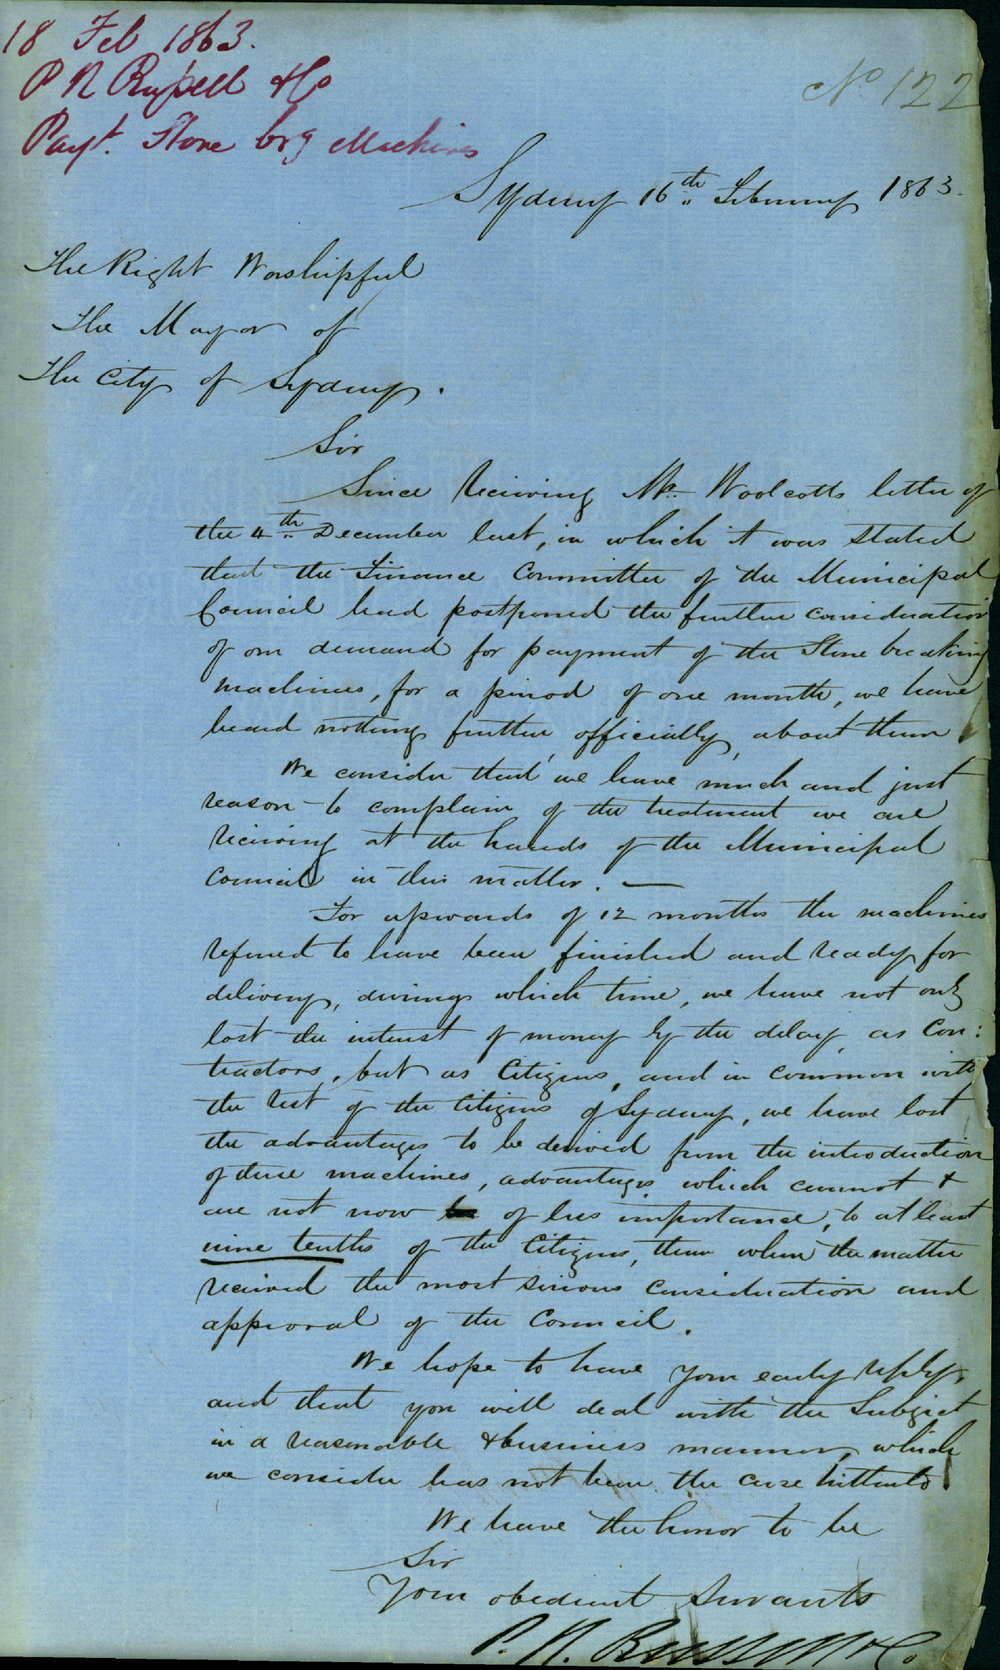 18 Feb 1863.
P N Russell & Co
Payt. Stone brg Machines
No. 122
Sydney 16th February 1863.
The Right Worshipful
The Mayor of
The City of Sydney.
Sir
Since receiving Mr. Woolcotts letter of
the 4th December last, in which it was stated
that the Finance Committee of the Municipal
Council had postponed the further consideration
of our demand for payment of the Stone breaking
machines, for a period of one month, we have
heard nothing further, officially, about them.
We consider that we have much and just
reason to complain of the treatment we are
receiving at the hands of the Municipal
Council in this matter. —
For upwards of 12 months the machines
referred to have been finished and ready for
delivery, during which time, we have not only
lost the interest of money by the delay, as Con:
tractors, but as Citizens, and in common with
the rest of the Citizens of Sydney, we have lost
the advantages to be derived from the introduction
of these machines, advantages which cannot &
are not now of less importance, to at least
nine tenths of the Citizens, then when the matter
received the most serious consideration and
approval of the Council.
We hope to have your early reply,
and that you will deal with the Subject
in a reasonable & business manner, which
we consider has not been the case hitherto.
We have the honor to be
Sir
Your obedient Servants
P. N. Russell & Co